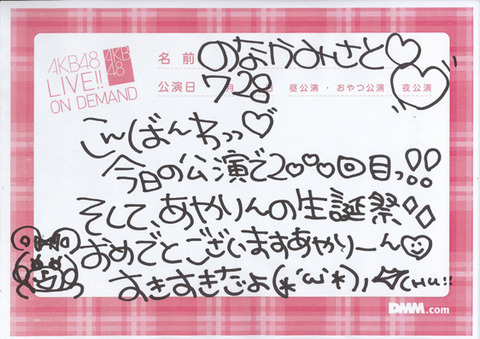 AKB48
LIVE!!
ON DEMAND
AKB
48
名前 のなかみさと♡♡
公演日 7月28日 昼公演・おやつ公演・夜公演
こんばんわっっ♡
今日の公演で200回目っ!!
そして あやりんの生誕祭
おめでとございますあやりーん
すきすきだよ(*´ω`*)ノ☆CHU!!
DMM.com